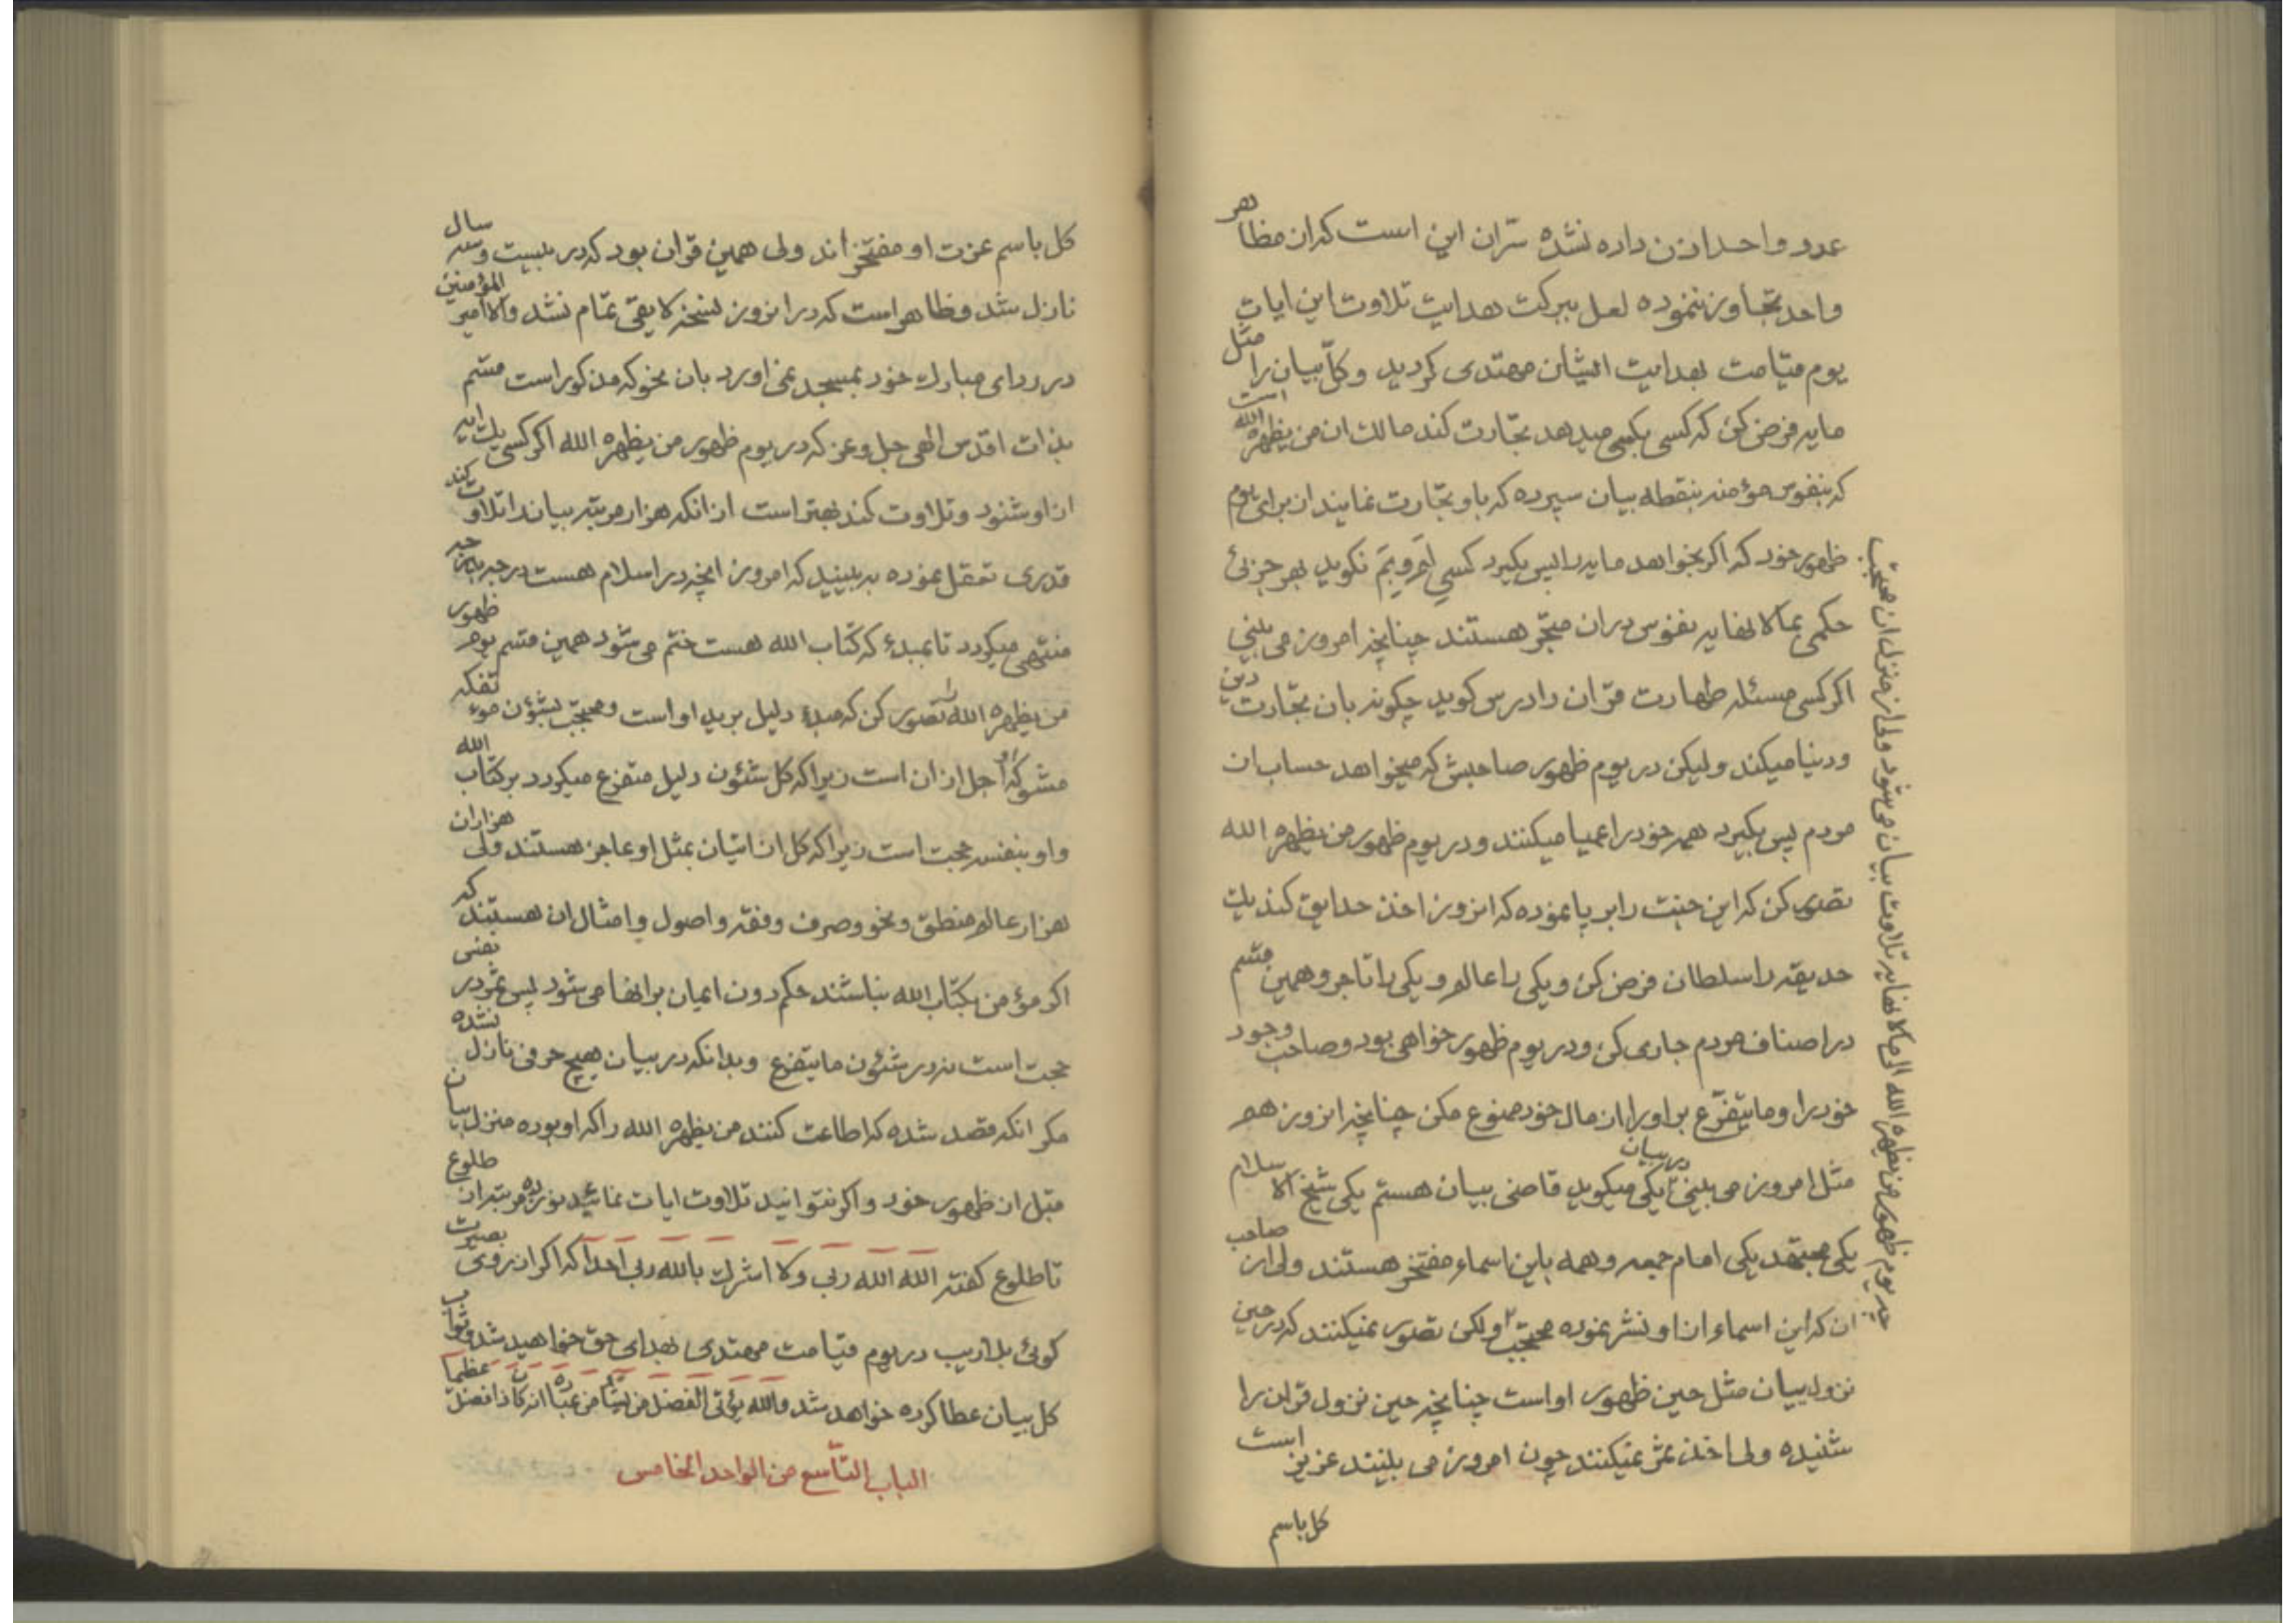 عدد واحد اذن داده نشده سرّ ان این است که ان مظاهر
واحد تجاوز ننموده لعل ببرکت هدایت تلاوت این ایات
یوم قیامت بهدایت ایشان مهتدی کردید و کلّ بیان را مثل
مایه فرض کن که کسی بکسی میدهد تجارت کند مالک ان من یظهره الله است
که بنفوس مؤمنه بنقطه بیان سپرده که باو تجارت نمایند از برای یوم
ظهور خود که اکر بخواهد مایه را پس بکیرد کسی لم و بم نکوید بهر جزئی
حکمی بما لا نهایه نفوس در ان متجر هستند چنانچه امروز می بینی
اکر کسی مسئله طهارت قران را درس کوید چکونه بان تجارت دین
و دنیا میکند ولیکن در یوم ظهور صاحبش که میخواهد حساب از
مردم پس بکیرد همه خود را اعمیا میکنند و در یوم ظهور من یظهره الله
تصور کن که این جنت را بر پا نموده که انروز اخذ حدایق کند یک
حدیقه را سلطان فرض کن و یکی را عالم و یکی را تاجر و همین قسم
در اصناف مردم جاری کن و در یوم ظهور خواهی بود و صاحب وجود
خود را و ما یتفرّع بر او را از مال خود ممنوع مکن چنانچه انروز هم
مثل امروز می بینی در بیان یکی میکوید قاضی بیان هستم یکی شیخ الاسلام
یکی مجتهد یکی امام جمعه و همه باین اسماء مفتخر هستند ولی از صاحب
ان که این اسماء از او نشر نموده محتجب و لکن تصور نمیکنند که در حین
نزول بیان مثل حین ظهور او است چنانچه حین نزول قران را
شنیده ولی اخذ ثمر نمیکنند چون امروز می بینند عزیز است
کل باسم
چه یوم ظهور من یظهره الله الی ما لا نهایه تلاوت بیان می شود ولی از منزل ان محتجب
کل باسم عزت او مفتخراند ولی همین قران بود که در بیست و سه سال
نازل شد و ظاهر است که در انروز نسخه لایقی تمام نشد و الا امیر المؤمنین
در ردای مبارک خود بمسجد نمی اورد بان نحو که مذکور است قسم
بذات اقدس الهی جل و عز که در یوم ظهور من یظهره الله اکر کسی یک ایه
از او شنود و تلاوت کند بهتر است از انکه هزار مرتبه بیان را تلاوت کند
قدری تعقل نموده به بینید که امروز انچه در اسلام هست درجه بدرجه
منتهی میکردد تا بمبدء که کتاب الله هست ختم می شود همین قسم یوم ظهور
من یظهره الله را تصور کن که مبدء دلیل بر ید او است و محتجب بشؤن موء تفکه
مشو که او اجل از ان است زیرا که کل شئون دلیل متفرع میکردد بر کتاب الله
و او بنفسه حجت است زیرا که کل از اتیان بمثل او عاجز هستند ولی هزاران
هزار عالم منطق و نحو و صرف و فقه و اصول و امثال ان هستند که
اکر مؤمن بکتاب الله نباشند حکم دون ایمان بر انها می شود پس ثمر در نفس
حجت است نه در شئون ما یتفرع و بدانکه در بیان هیچ حرفی نازل نشده
مکر انکه قصد شده که اطاعت کنند من یظهره الله را که او بوده منزل بیان
قبل از ظهور خود و اکر نتوانید تلاوت ایات نمائید نوزده مرتبه از طلوع
تا طلوع کفته الله الله ربی و لا اشرک بالله ربی احدا که اکر از روی بصیرت
کوئی بلا ریب در یوم قیامت مهتدی بهدای حق خواهید شد و ثواب
کل بیان عطا کرده خواهد شد والله یؤتی الفضل من یشاء من عباده انه کان ذا فضل عظیما
الباب التاسع من الواحد الخامس